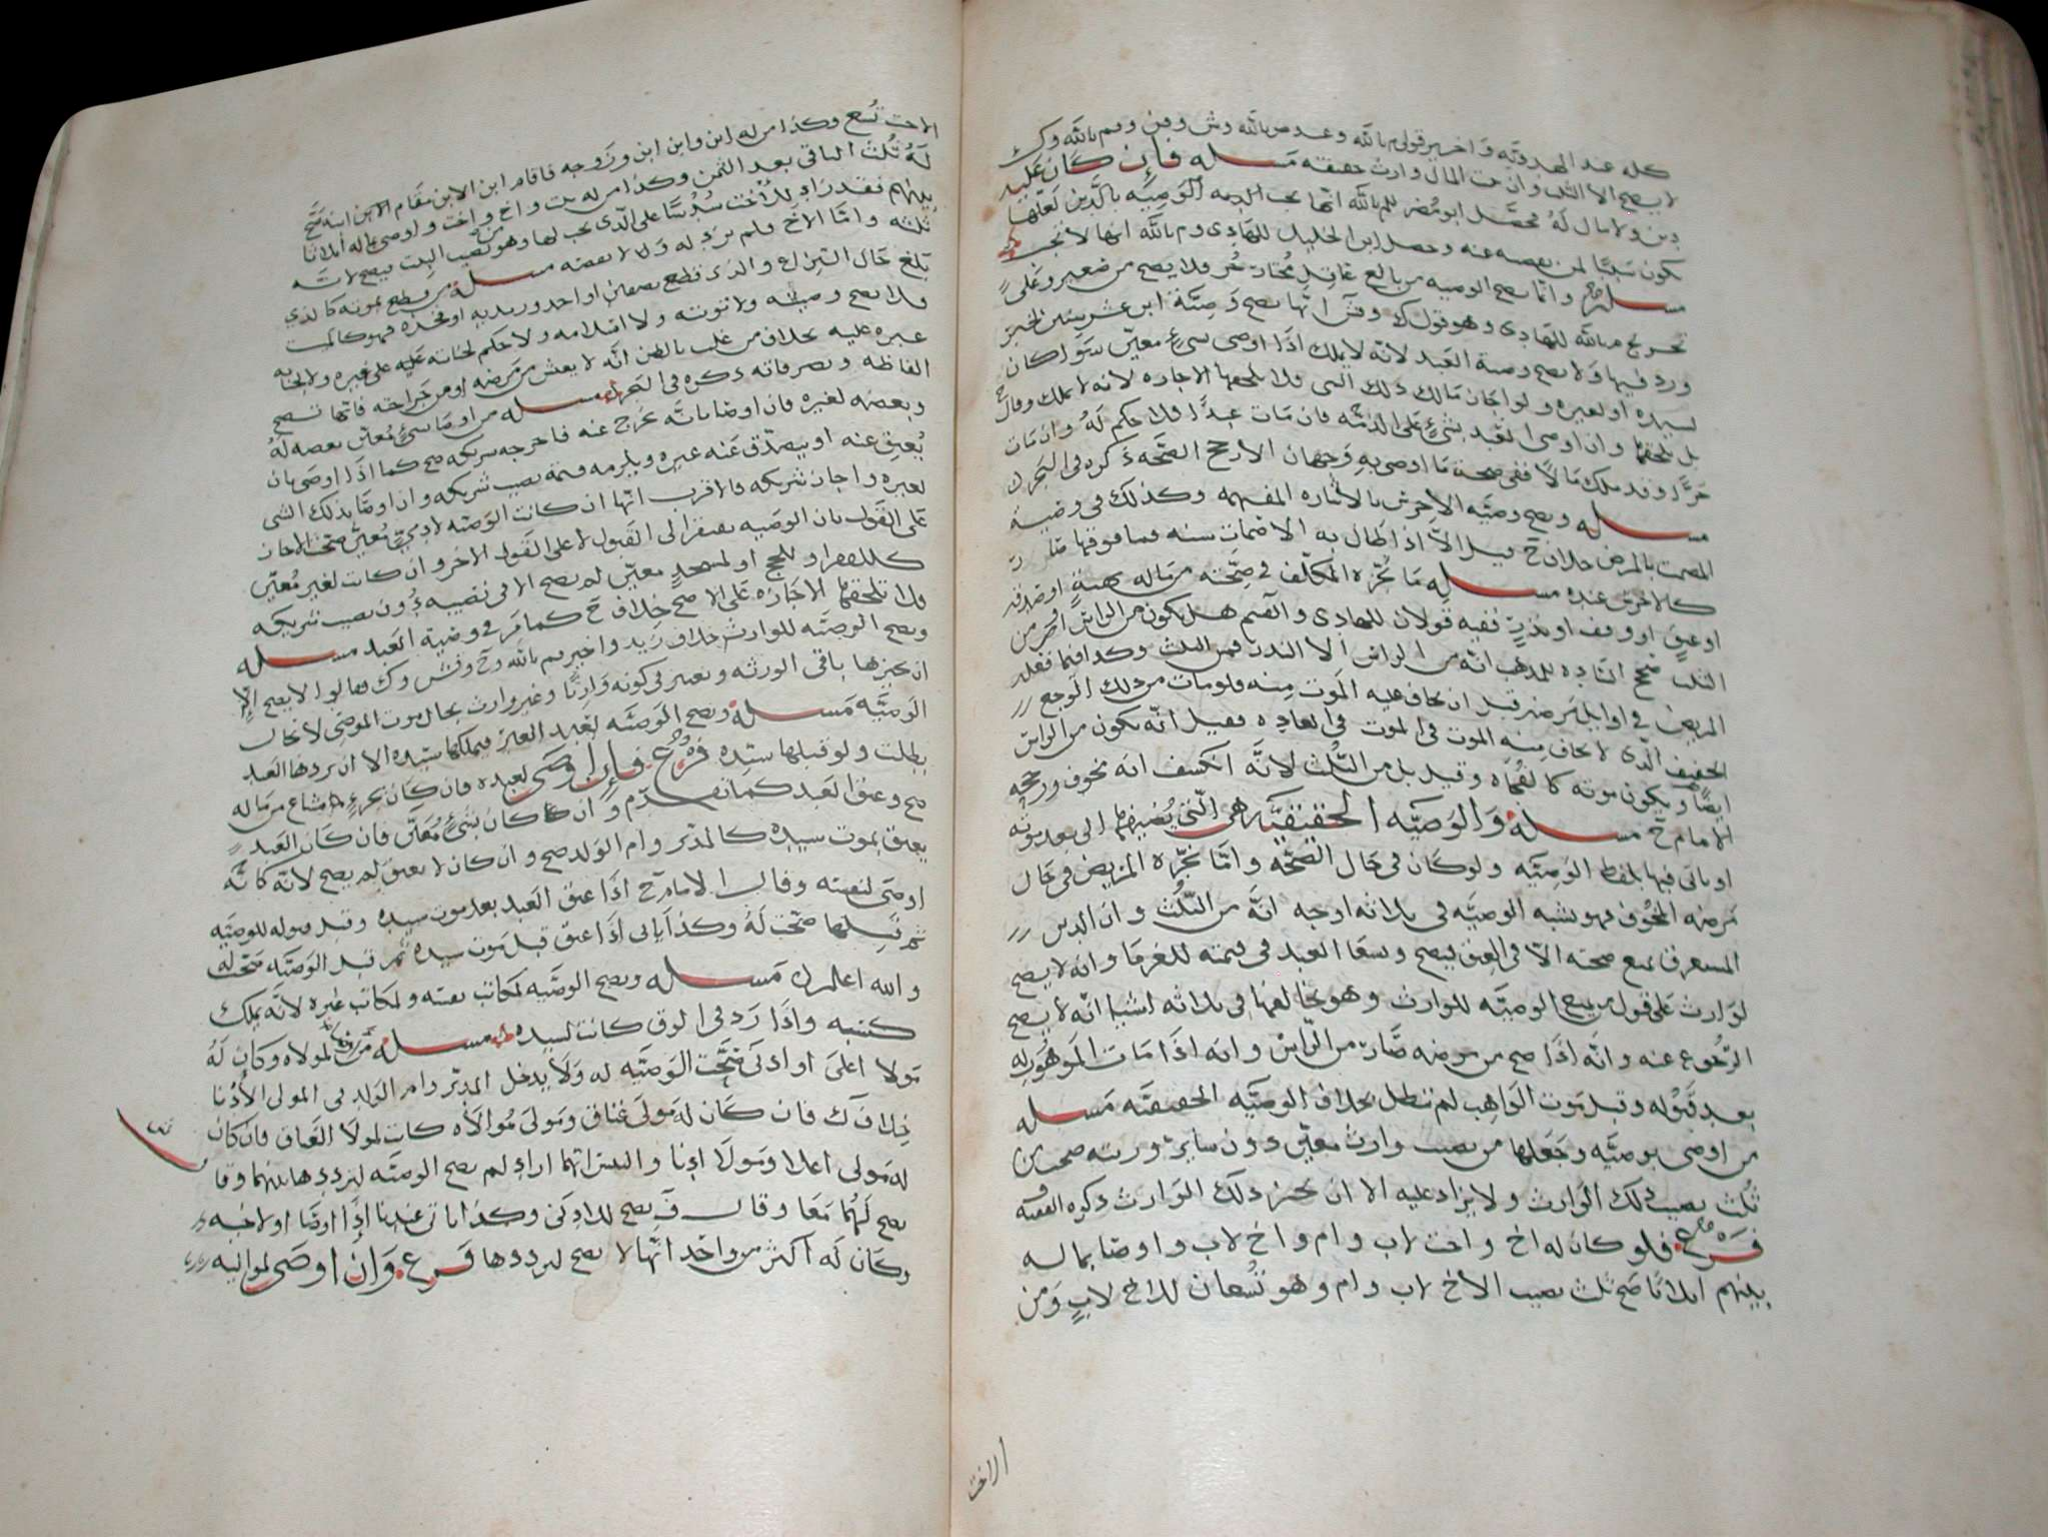 كله عند الهدويه واخير قولي م بالله
لا يصح الا الثلث وان حت المال وارث حقيقته مسله فان كان عليه
دين ولا مال له فحصل ابو مضر للم بالله انها تجب الوصيه بالدين لعلها
يكون سببا لمن يقضيه عنه وحصل ابن الخليل للهادي وم بالله انها لا تجب
مسله وانما تصح الوصيه من بالغ عاقل مختار حر فلا يصح من صغير وعلى
تخريج م بالله للهادي وهو قول ك وقش انها تصح وصية ابن عشر سنين لخبر
ورد فيها ولا تصح وصية العبد لانه لا يملك اذا اوصى بشيء معين سوا كان
لسيده او لغيره ولو اجاز مالك ذلك الشي فلا تلحقها الاجازه لانه لا يملك وقال ح
بل تلحقها وان اوصى العبد بشيء على الذمه فان مات عبدا فلا حكم له وان مات
حرا وقد ملك مالا ففي صحة ما اوصى به وجهان الارجح الصحه ذكره في البحر
مسله وتصح وصية الاخرس بالاشاره المفهمه وكذلك في وصية
المصمت بالمرض خلاف ح قيل الا اذا طال به الاصمات سنه فما فوقها
كالاخرس عنده مسله ما نجزه المكلف في صحته من ماله كهبة او صدقه
او عتق او وقف او نذر ففيه قولان للهادي والقسم هل يكون من الراس او من
الثلث صحح الساده للمذهب انه من الراس الا النذر فمن الثلث وكذا فيما فعله
المريض في اوايل مرضه قبل ان يخاف عليه الموت منه فلو مات من ذلك الوجع
الخفيف الذي لا يخاف منه الموت في العاده فقيل انه يكون من الراس
ايضا ويكون موته كالفجاه وقيل بل من الثلث لانه انكشف انه مخوف ورجحه
الامام ح مسله والوصيه الحقيقيه هي التي يضيفها الى بعد موته
او ياتي فيها بلفظ الوصيه ولو كان في حال الصحه واما نجزه المريض في حال
مرضه المخوف فهو يشبه الوصيه في ثلاثه اوجه انه من الثلث وان الدين
المستغرق يمنع صحته الا في العتق فيصح ويسعا العبد في قيمته للغرما وانه لا يصح
لوارث على قول من يمنع الوصيه للوارث وهو يخالفها في ثلاثه اشيا انه لا يصح
الرجوع عنه وانه اذا صح من مرضه صار من الراس وانه اذا مات الموهوب له
بعد قبوله وقبل موت الواهب لم تبطل بخلاف الوصيه الحقيقيه مسله
من اوصى بوصيه وجعلها من نصيب وارث معين دون ساير ورثته صحت من
ثلث نصيب ذلك الوارث ولا يزاد عليه الا ان يجيز ذلك الوارث ذكره الفقيه
فرع فلو كان له اخ واخت لاب وام واخ لاب واوصا بماله
بينهم اثلاثا صح ثلث نصيب الاخ لاب وام وهو تسعان للاخ لاب ومن
الاخت
الاخت تسع وكذا من له ابن وابن ابن وزوجه فاقام ابن الابن مقام الابن
له ثلث الباقي بعد الثمن وكذا من له بنت واخ واخت واوصى بماله اثلاثا
بينهم فقد زاد للاخت سدسا على الذي يجب لها وهو من نصيب البنت فيصح
ثلثه واما الاخ فلم يزد له ولا نقصه مسله من قطع بموته كالذي
بلغ حال النزاع والذي قطع نصفين او احد وريديه او نحره فهو كالميت
فلا تصح وصيته ولا توبته ولا اسلامه ولا حكم لجنايته على غيره ولا لجنايه
غيره عليه بخلاف من غلب بالظن انه لا يعيش من مرضه او من جراحته فانها تصح
الفاظه وتصرفاته ذكره في البحر مسله من اوصا بشيء معين بعضه له
وبعضه لغيره فان اوصا بانه يخرج عنه فاخرجه شريكه صح كما اذا اوصى بان
يعتق عنه او يتصدق عنه غيره ويلزمه قيمة نصيب شريكه وان اوصا بذلك الشي
لغيره واجاز شريكه فالاقرب انها ان كانت الوصيه لادمي معين صحت الاجازه
على القول بان الوصيه تفتقر الى القبول لا على القول الاخر وان كانت لغير معين
كالفقرا وللحج او لمسجد معين لم يصح الا في نصيبه دون نصيب شريكه
فلا تلحقها الاجازه على الاصح خلاف ح كما مر في وصية العبد مسله
وتصح الوصيه للوارث خلاف زيد واخير م بالله وح وقش وك فقالوا لا يصح الا
ان يجيزها باقي الورثه ويعتبر في كونه وارثا وغير وارث بحال موت الموصي لا بحال
الوصيه مسله وتصح الوصيه لعبد الغير فيملكها سيده الا ان ردها العبد
بطلت ولو قبلها سيده فرع فان اوصى لعبده فان كان بجزء مشاع من ماله
صح وعتق العبد كما تقدم وان كان بشيء معين فان كان العبد
يعتق بموت سيده كالمدبر وام الولد صح وان كان لا يعتق لم يصح لانه كانه
اوصى لنفسه وقال الامام ح اذا عتق العبد بعد موت سيده وقبل قبوله للوصيه
ثم قبلها صحت له وكذا ياتي اذا عتق قبل موت سيده ثم قبل الوصيه صحت له
والله اعلم مسله وتصح الوصيه لمكاتب نفسه ولمكاتب غيره لانه يملك
كسبه واذا رد في الرق كانت لسيده مسله من اوصا لمولاه وكان له
مولا اعلى او ادنى صحت الوصيه له ولا يدخل المدبر وام الولد في المولى الادنا
خلاف ك فان كان له مولى عتاق ومولى موالاه كانت لمولا العتاق وان كان
له مولى اعلا ومولا ادنا والتبس ايهما اراد لم تصح الوصيه لترددها بينهما وقا
يصح لهما معا وقال ف يصح للادنى وكذا ياتي عندنا اذا اوصا او لاخيه
وكان له اكثر من واحد انها لا تصح لترددها فرع وان اوصى لمواليه